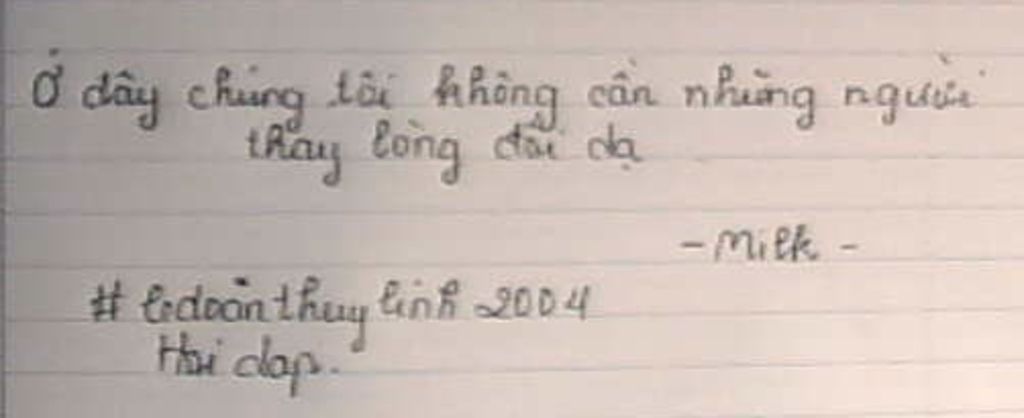 Ở đây chúng tôi không cần những người
thay lòng đổi dạ
- Milk -
# ledoanthuylinh2004
Hỏi đáp.